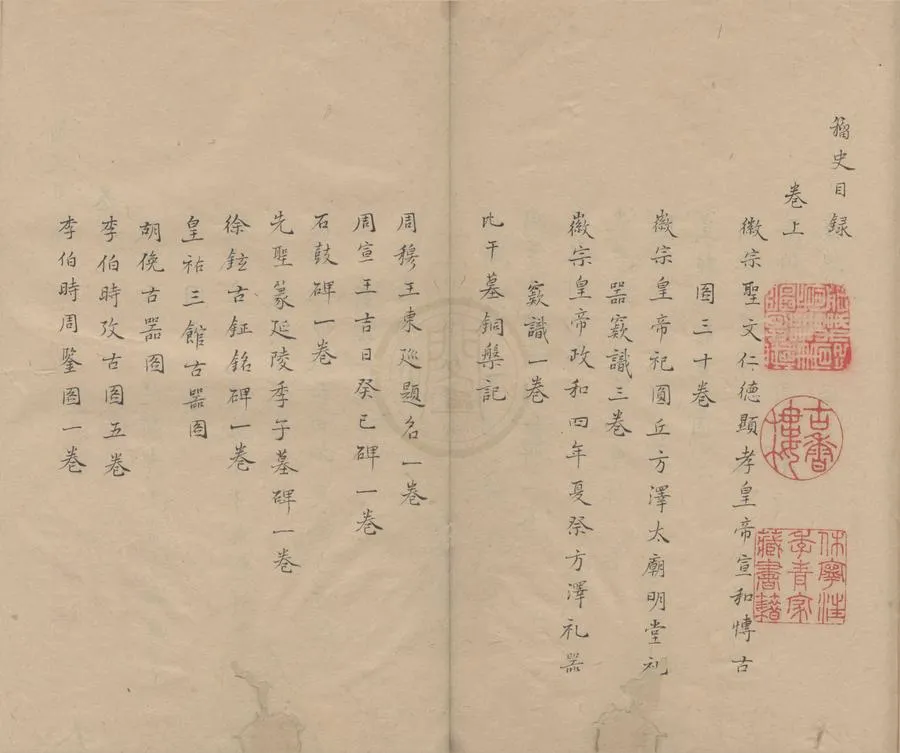 籀史目録
卷上
徽宗聖文仁德顯孝皇帝宣和愽古
圖三十卷
徽宗皇帝祀圓丘方澤太廟明堂礼
器窾識三卷
徽宗皇帝政和四年夏祭方澤礼器
窾識一卷
比干墓銅槃記
周穆王東巡題名一卷
周宣王吉日癸巳碑一卷
石鼓碑一卷
先聖篆延陵季子墓碑一卷
徐鉉古鉦銘碑一卷
皇祐三館古器圖
胡俛古器圖
李伯時攷古圖五卷
李伯時周鑒圖一卷
古香樓
休寧汪
季青家
藏書籍